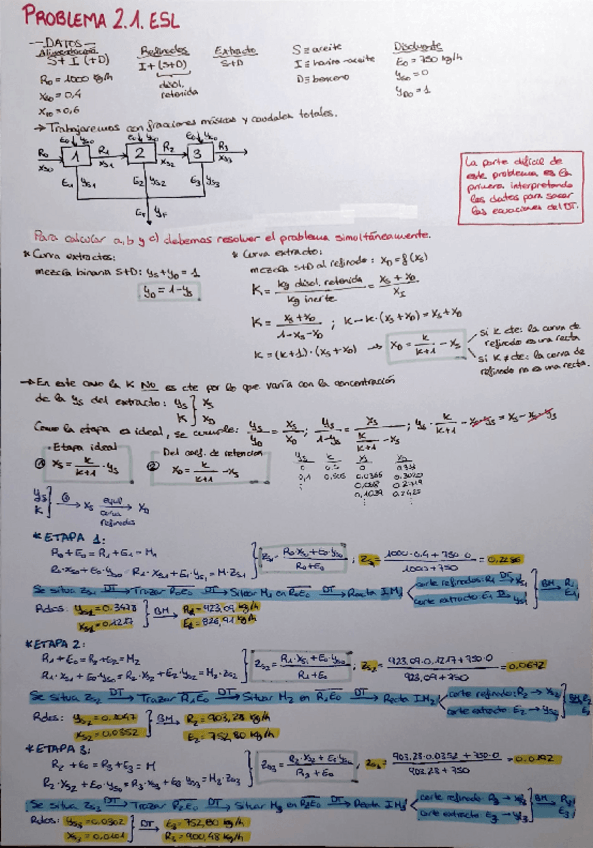 PROBLEMA 2.1. ESL
— DATOS —
Alimentación
S + I (+D)
R0 = 1000 kg/h
xs0 = 0,4
xI0 = 0,6
Refinados
I + (S+D)
disol. retenida
Extracto
S+D
S ≡ aceite
I ≡ harina-aceite
D ≡ benceno
Disolvente
E0 = 750 kg/h
ys0 = 0
yD0 = 1
→ Trabajaremos con fracciones másicas y caudales totales.
R0 xs0 E0 ys0 1 R1 xs1 E0 ys0 2 R2 xs2 E0 ys0 3 R3 xs3
E1 ys1 E2 ys2 E3 ys3
ET yT
La parte difícil de
este problema es la
primera, interpretando
los datos para sacar
las ecuaciones del DT.
Para calcular a, b y c) debemos resolver el problema simultáneamente.
* Curva extractos:
mezcla binaria S+D: ys + yD = 1
yD = 1 - ys
* Curva extracto:
mezcla S+D al refinado: xD = f(xs)
K = kg disol. retenida / kg inerte = xs + xD / xI
K = xs + xD / 1 - xs - xD ; K - K·(xs + xD) = xs + xD
K = (K+1)·(xs + xD) → xD = K / K+1 - xs
si K cte: la curva de
refinado es una recta
si K ≠ cte: la curva de
refinado no es una recta.
→ En este caso la K NO es cte por lo que varía con la concentración
de la ys del extracto: ys K } xs xD
Como la etapa es ideal, se cumple: ys / yD = xs / xD ; ys / 1-ys = xs / K/K+1 - xs ; ys · K/K+1 - xs·ys = xs - xs·ys
Etapa ideal
① xs = K / K+1 · ys
Del coef. de retención
② xD = K / K+1 - xs
ys K xs xD
0 0.5 0
0,1 0,505 0.0336 0.3020
ys K } ① → xs equil curva refinados → xD
* ETAPA 1:
R0 + E0 = R1 + E1 = M1
R0·xs0 + E0·ys0 = R1·xs1 + E1·ys1 = M·zs1
zs1 = R0·xs0 + E0·ys0 / R0 + E0 ; zs1 = 1000·0.4 + 750·0 / 1000 + 750 = 0.2286
Se sitúa zs1 DT → Trazar R0E0 DT → Situar M1 en R0E0 DT → Recta IM1 corte refinados: R1 DT → xs1 corte extracto E1 DT → ys1 BM → R1 E1
Rdos: ys1 = 0.3478 xs1 = 0.1217 } BM → R1 = 923,09 kg/h E1 = 826,91 kg/h
* ETAPA 2:
R1 + E0 = R2 + E2 = M2
R1·xs1 + E0·ys0 = R2·xs2 + E2·ys2 = M2·zs2
zs2 = R1·xs1 + E0·ys0 / R1 + E0 ; zs2 = 923.09·0.1217 + 750·0 / 923,09 + 750 = 0.0672
Se sitúa zs2 DT → Trazar R1E0 DT → Situar M2 en R1E0 DT → Recta IM2 corte refinado: R2 → xs2 corte extracto: E2 → ys2 BM R2 E2
Rdos: ys2 = 0.1047 xs2 = 0.0352 } BM → R2 = 903,28 kg/h E2 = 752,80 kg/h
* ETAPA 3:
R2 + E0 = R3 + E3 = M
R2·xs2 + E0·ys0 = R3·xs3 + E3·ys3 = M3·zs3
zs3 = R2·xs2 + E0·ys0 / R2 + E0 ; zs3 = 903.28·0.0352 + 750·0 / 903.28 + 750 = 0.0192
Se sitúa zs3 DT → Trazar R2E0 DT → Situar M3 en R2E0 DT → Recta IM3 corte refinado R3 → xs3 corte extracto: E3 → ys3 BM → R3 E3
Rdos: ys3 = 0.0302 xs3 = 0.0101 } DT → E3 = 752,80 kg/h R3 = 900,48 kg/h